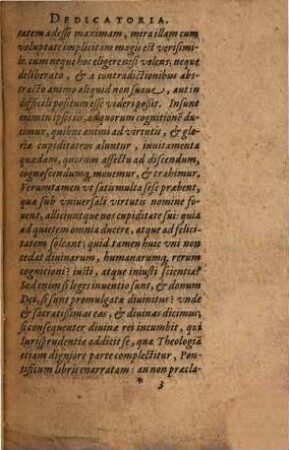 DEDICATORIA.
tatem adesse maximam, mira illam cum
voluptate implicitam magis est verisimi-
le. cum neque hoc eligere nisi volens, neque
deliberato, & a contradictionibus abs-
tracto animo aliquid non suaue, aut in
difficili positum esse videri possit. Insunt
enim in ipsis iis, ad quorum cognitionē du-
cimur, quibus animi ad virtutis, & glo-
riæ cupiditatem aluntur, inuitamenta
quædam, quorum affectu ad discendum,
cognoscendumq; mouemur, & trahimur,
Verumtamen vt satis multa sese præbent,
quæ sub vniuersali virtutis nomine fo-
uent, alliciuntque nos cupiditate sui: quia
ad quietem omnia ducere, atque ad felici-
tatem soleant: quid tamen huic vni non
cedat diuinarum, humanarumq; rerum
cognitioni? iusti, atque iniusti scientiæ?
Sed enim si leges inuentio sunt, & donum
Dei, si sunt promulgatæ diuinitus? vnde
& sacratissimas eas, & diuinas dicimus,
si consequenter diuinæ rei incumbit, qui
Iurisprudentiæ addicit se, quæ Theologiā
etiam digniore parte complectitur, Pon-
tificum libris enarratam: an non præcla-
* 3